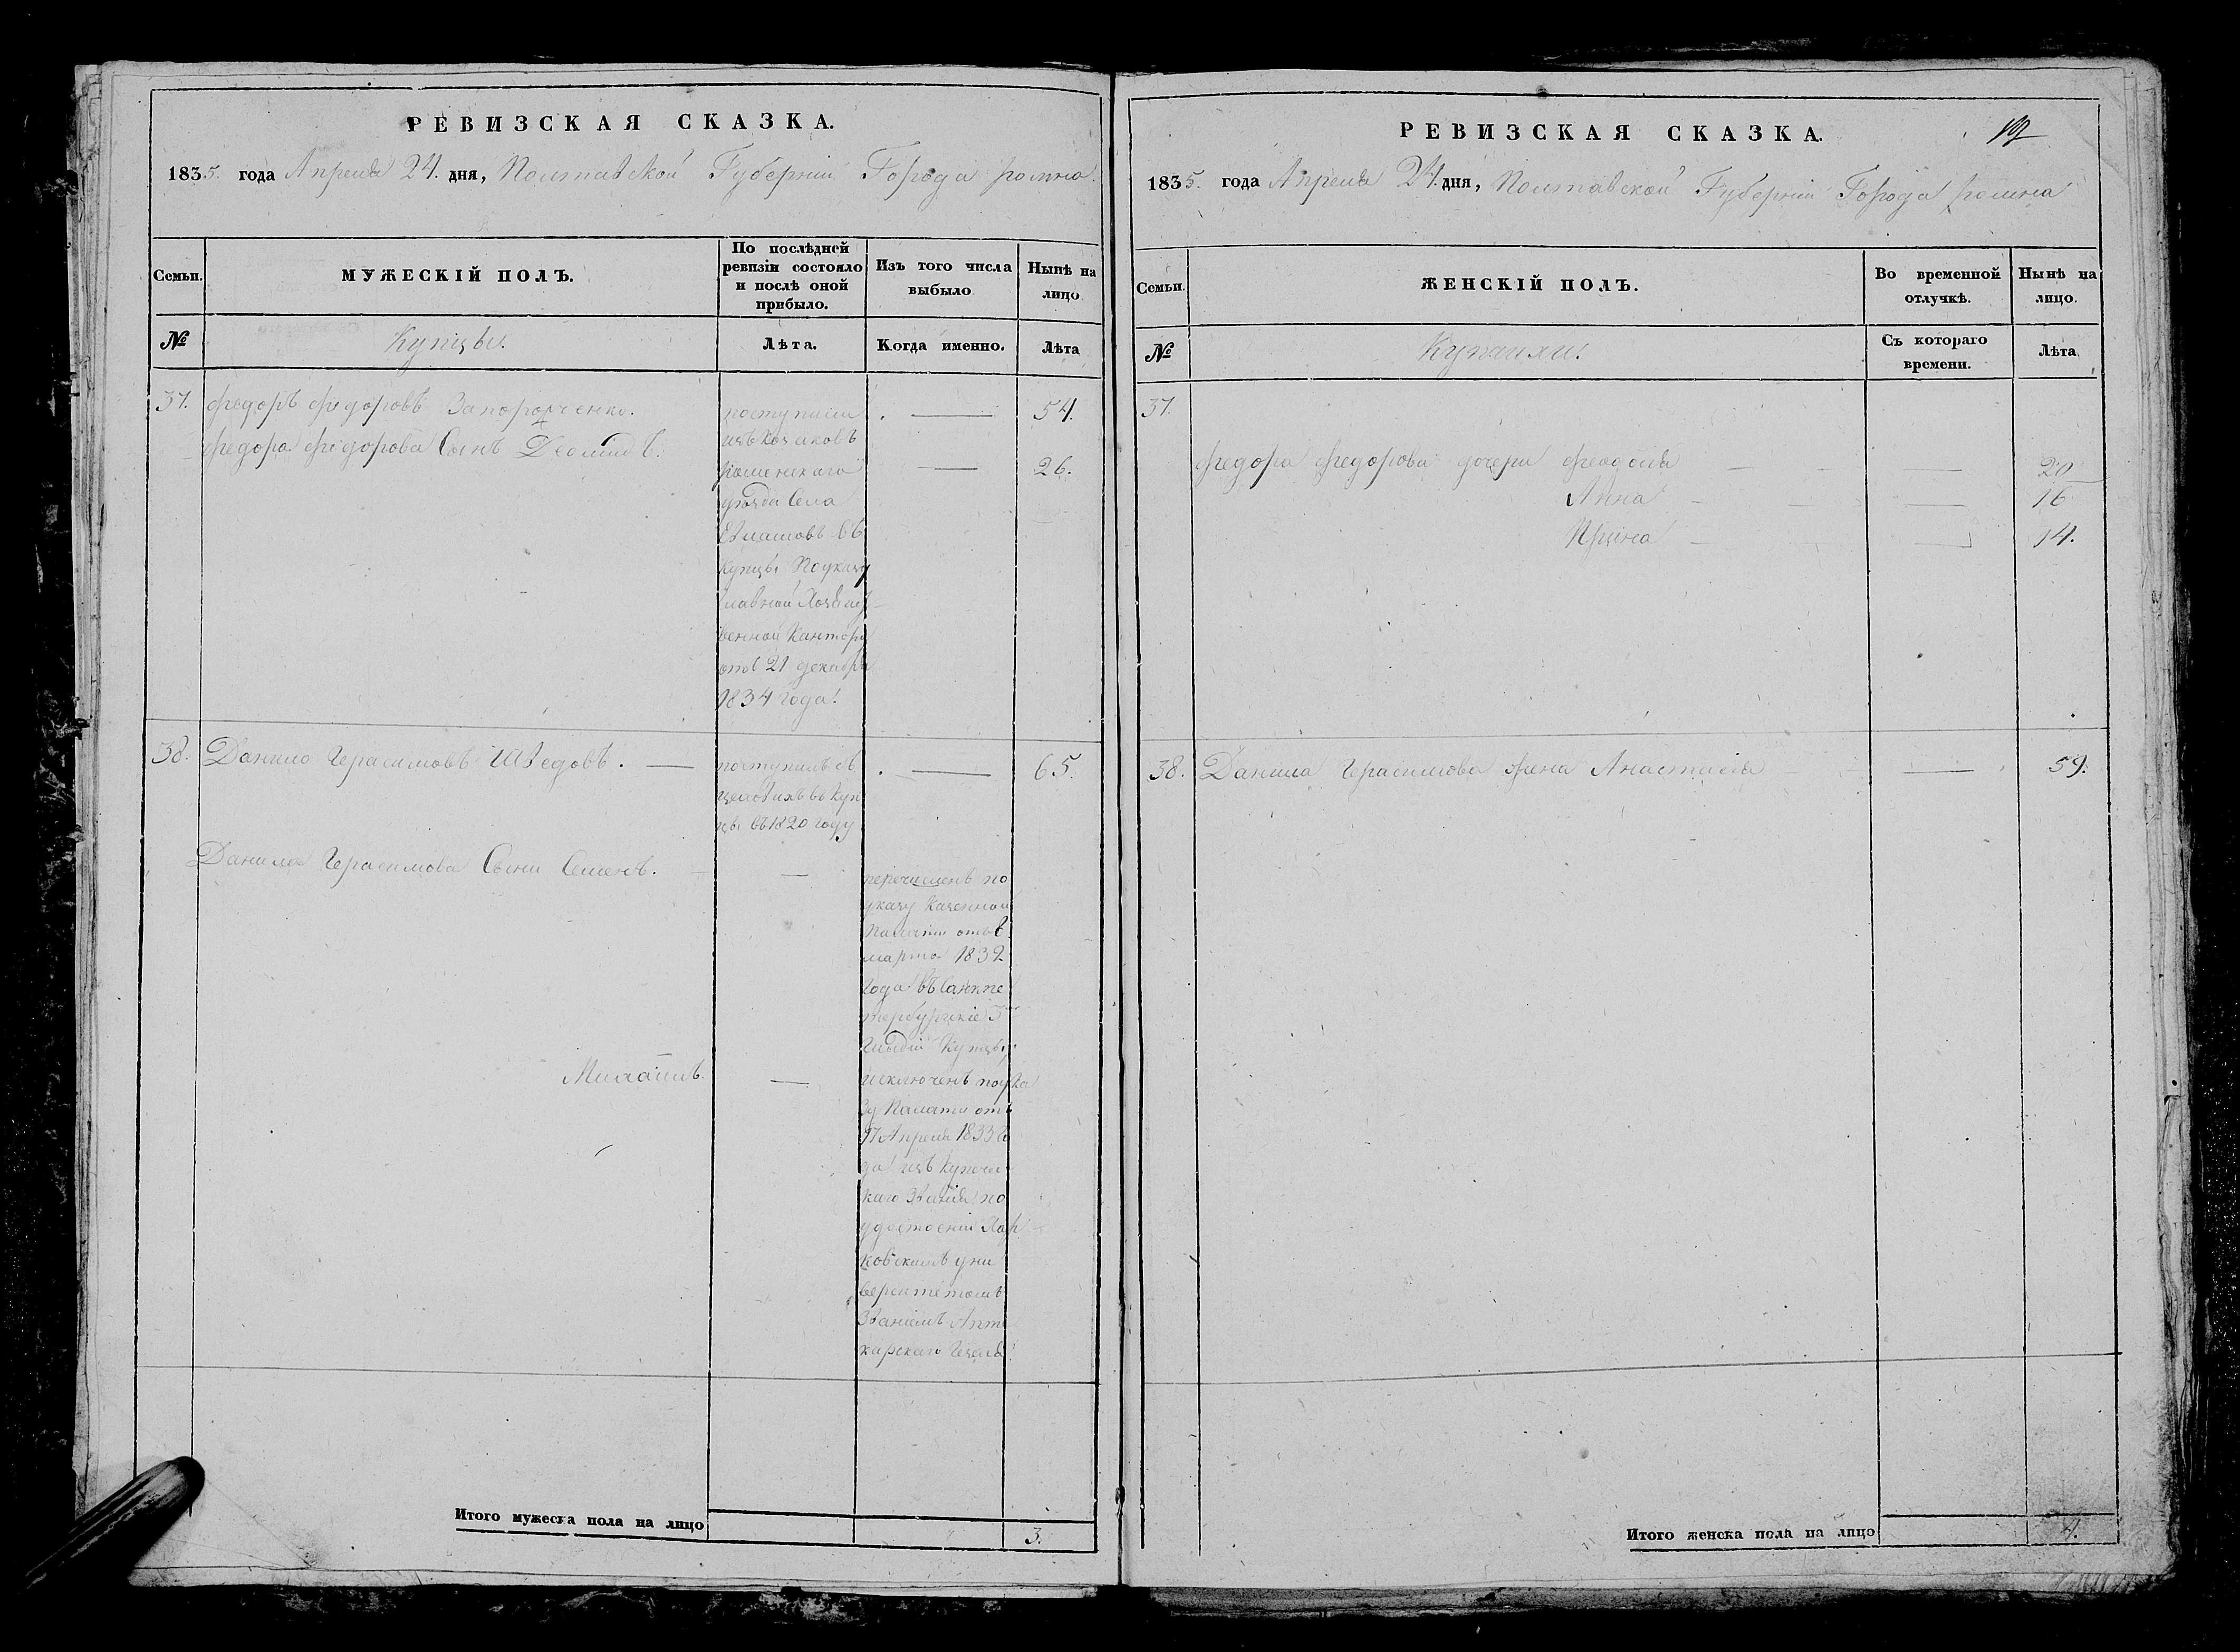 РЕВИЗСКАЯ СКАЗКА.
1835. года Апреля 24. дня, Полтавской Губернии Города ромна.
Семьи.
МУЖЕСКІЙ ПОЛЪ.
По послѣдней
ревизіи состояло
и послѣ оной
прибыло.
Изъ того числа
выбыло
Нынѣ на
лицо
№
Купцы.
Лѣта.
Когда именно.
Лѣта
37.
Федоръ Федоровъ Запорожченко.
54.
Федора Федорова Сынъ Деомидъ.
26.
поступили
изъ Козаковъ
роменскаго
уѣзда Села
въ
купцы По указу
Главной
Канторы
отъ 21 декабря
1834 года.
38.
Данило Герасимовъ Шведовъ.
поступилъ съ
въ Куп
цы въ 1820 году
65.
Данила Герасимова Сыни Семенъ.
перечисленъ по
указу Казенной
Палаты отъ
марта 1832
года въ Санкпе
тербургскіе 3
Гильдіи Купцы,
Михаилъ.
исключенъ по ука
зу Палаты отъ
17 Апреля 1833 го
да изъ Купечес
каго Званія по
удостоенію Хар
ковскимъ уни
верситетомъ
Званіемъ Апте
карскаго Гезеля.
Итого мужеска пола на лицо
3.
РЕВИЗСКАЯ СКАЗКА.
1835. года Апреля 24. дня, Полтавской Губернии Города ромна
Семьи.
ЖЕНСКІЙ ПОЛЪ.
Во временной
отлучкѣ.
Нынѣ на
лицо.
№
Купчихи.
Съ котораго
времени.
Лѣта
37.
Федора Федорова дочери Феодосья
20
Анна
16
Ирина
14.
38. Данила Герасимова жена Анастасія
59.
Итого женска пола на лицо
4.